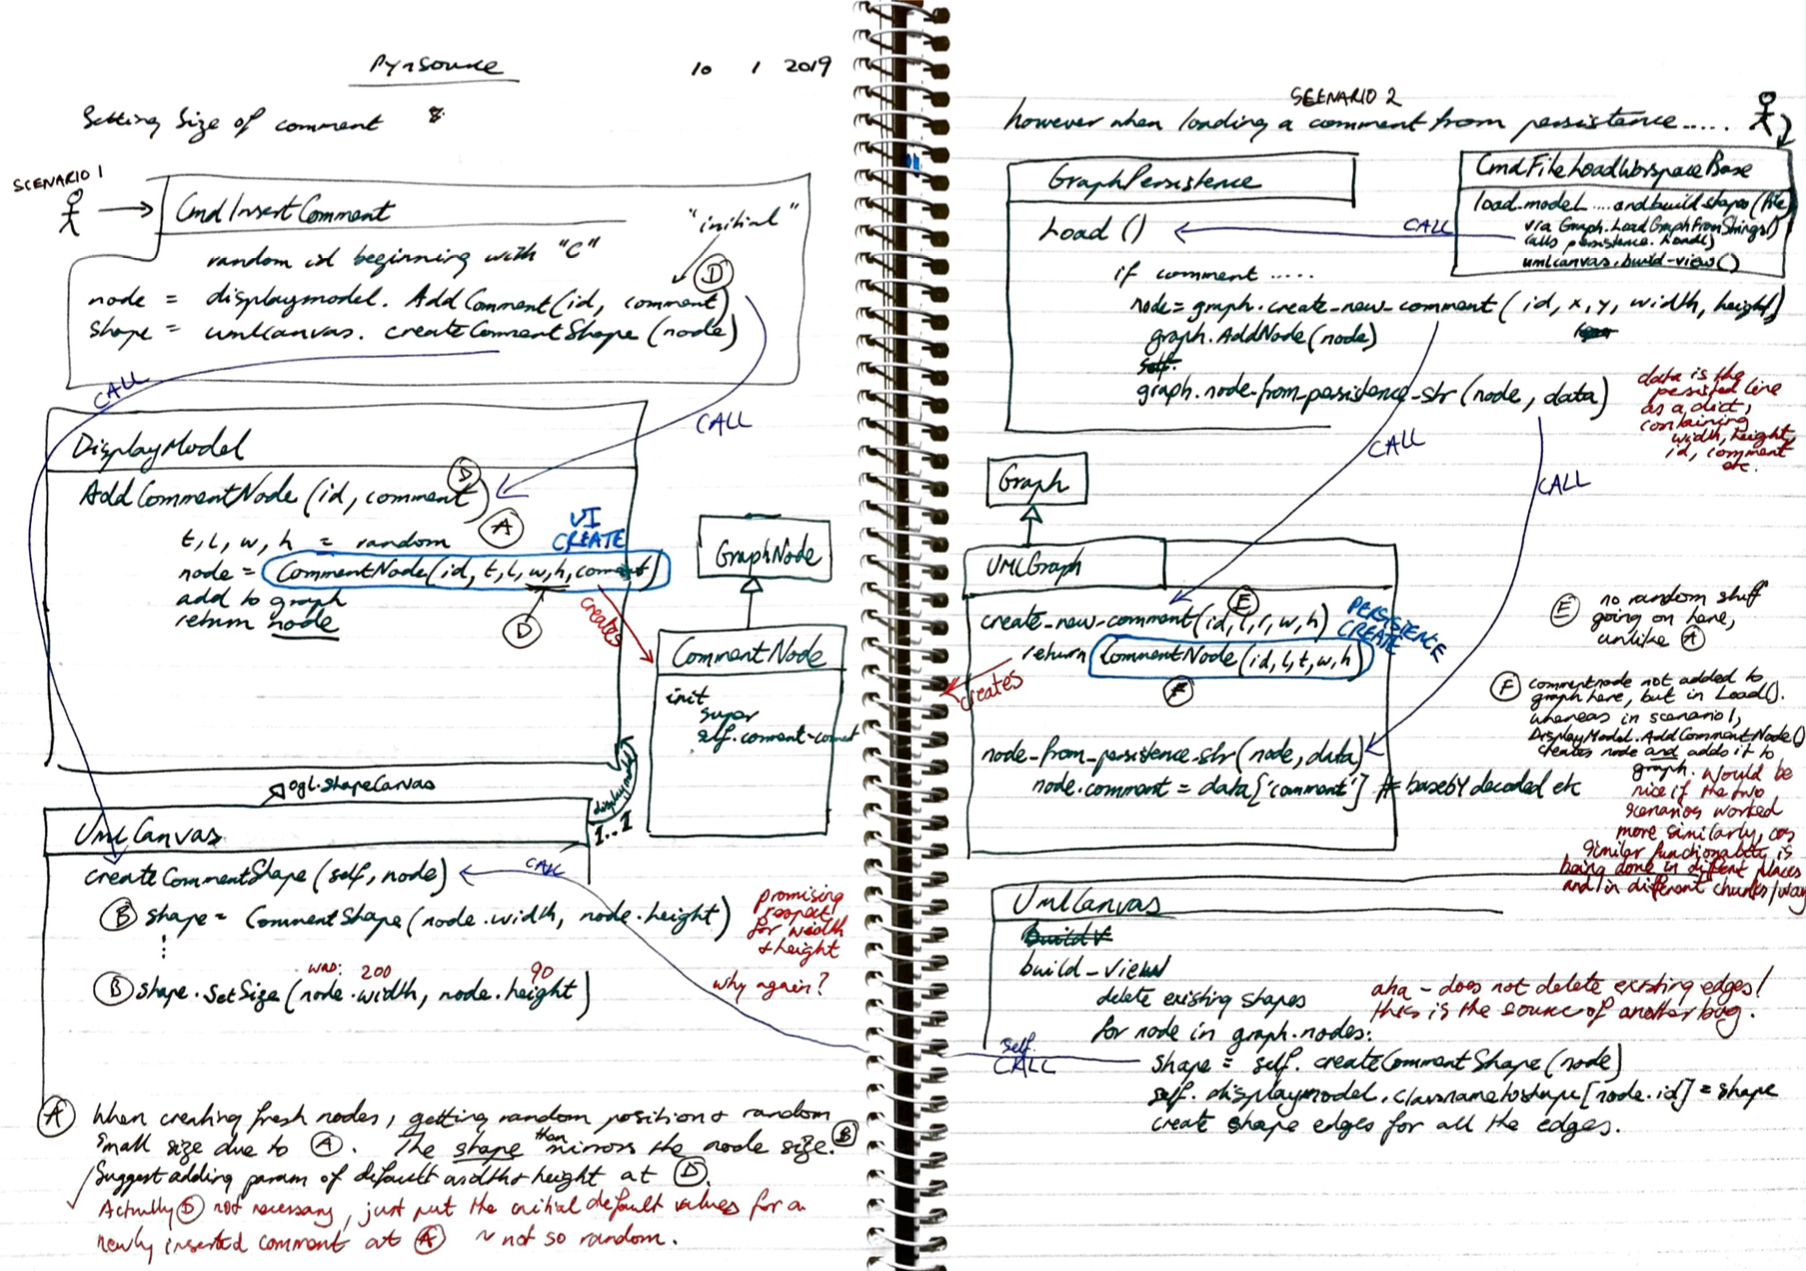 Pynsource
10 1 2019
Setting Size of comment :
SCENARIO 1
CmdInsertComment
"initial"
random id beginning with "C"
D
node = displaymodel. AddComment(id, comment)
shape = umlcanvas. createCommentShape (node)
CALL
CALL
DisplayModel
D
AddCommentNode (id, comment)
A
t, l, w, h = random
UI
CREATE
node = CommentNode(id, t, l, w, h, comment)
add to graph
return node
D
creates
GraphNode
CommentNode
init
super
self.comment=comment
displaymodel
1..1
ogl.ShapeCanvas
UmlCanvas
createCommentShape (self, node)
CALL
B shape = CommentShape (node.width, node.height)
promising
respect
for width
+ height
was: 200 90
B shape.SetSize (node.width, node.height)
why again?
A When creating fresh nodes, getting random position + random
small size due to A. The shape then mirrors the node size. B
Suggest adding param of default width + height at D.
Actually D not necessary, just put the initial default values for a
newly inserted comment at A ~ not so random.
SCENARIO 2
however when loading a comment from persistence.....
GraphPersistence
CmdFileLoadWorspaceBase
load.model....andbuild.shapes(file)
Load ()
CALL
via Graph.LoadGraphFromStrings()
calls persistence.Load()
umlcanvas.build-view()
if comment .....
node = graph.create_new_comment ( id, x, y, width, height)
graph.AddNode (node)
self.
graph.node_from_persistence_str (node, data)
data is the
persisted line
as a dict,
containing
width, height,
id, comment
etc.
CALL
CALL
Graph
UMLGraph
E
create_new_comment(id, l, r, w, h)
PERSISTENCE
CREATE
return CommentNode (id, l, t, w, h)
F
creates
node_from_persistence_str (node, data)
node.comment = data['comment'] # base64 decoded etc
E no random stuff
going on here,
unlike A
F commentnode not added to
graph here, but in Load().
whereas in scenario 1,
DisplayModel.AddCommentNode()
creates node and adds it to
graph. Would be
nice if the two
scenarios worked
more similarly, cos
similar functionality is
being done in different places
and in different chunks/way
UmlCanvas
BuildV
build_view
delete existing shapes
aha - does not delete existing edges!
this is the source of another bug.
for node in graph.nodes:
self.
CALL
shape = self. createCommentShape (node)
self. displaymodel.classnametoshape[node.id] = shape
create shape edges for all the edges.